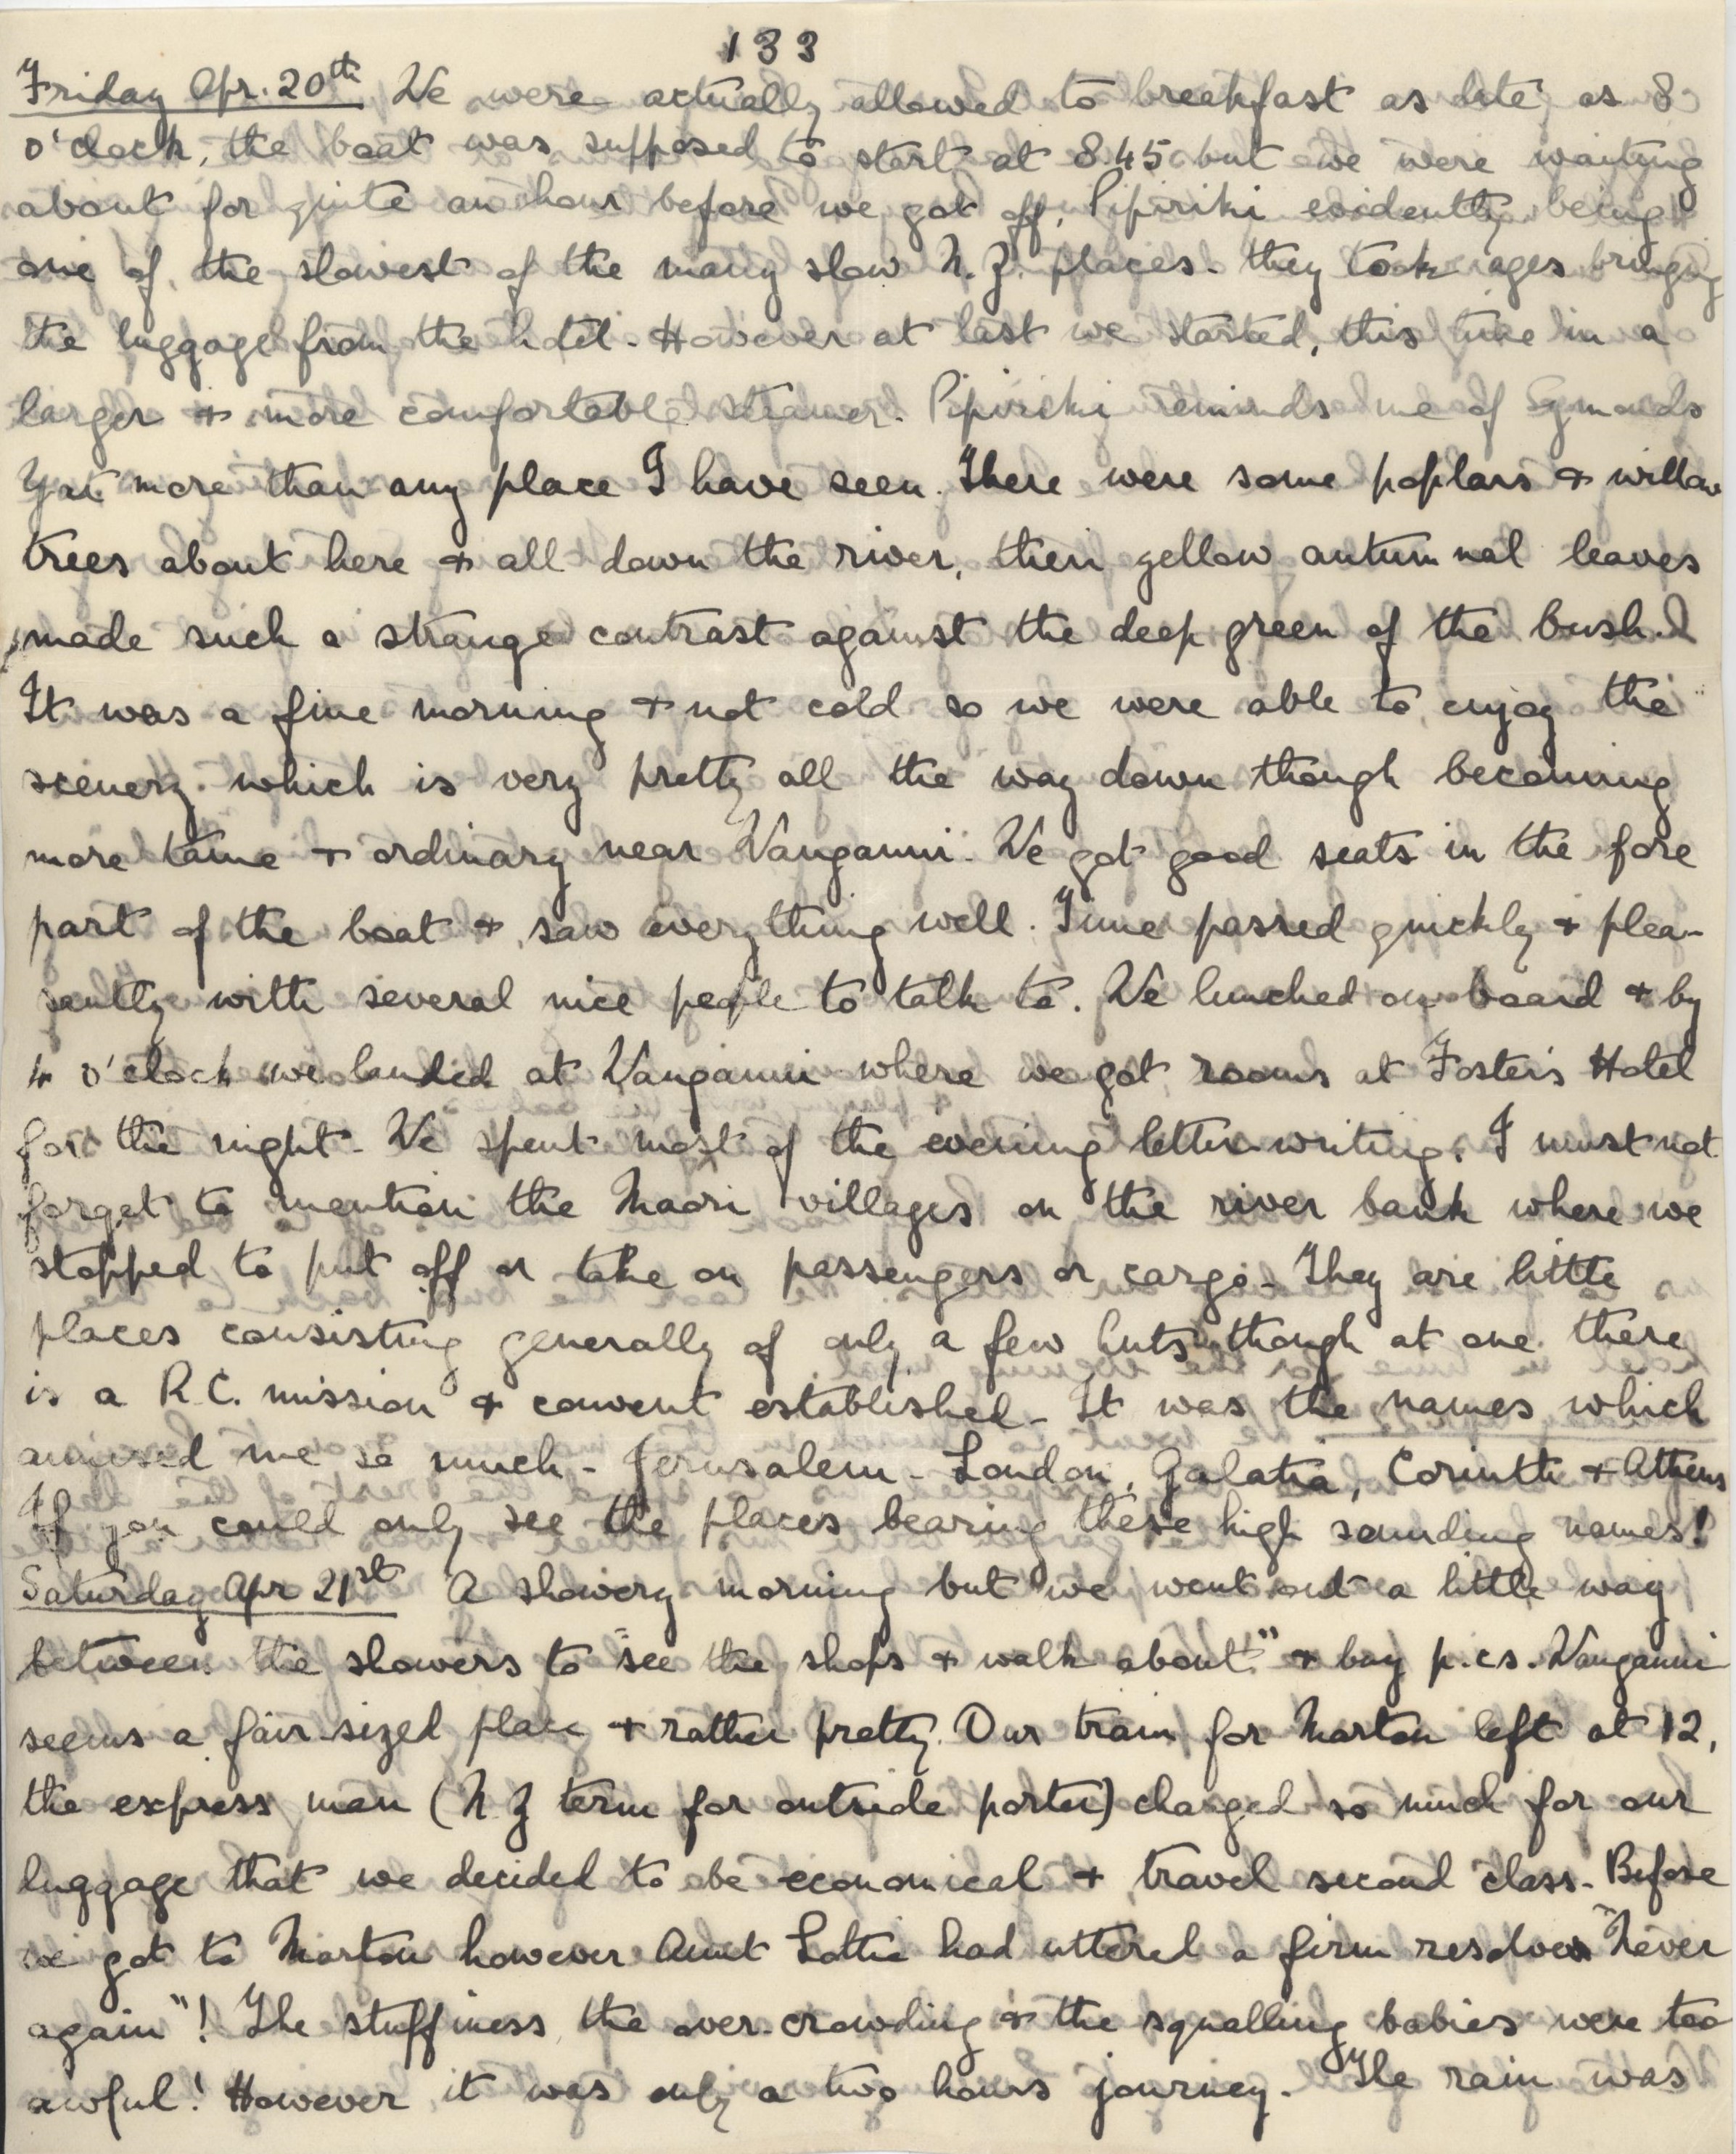 133
Friday Apr. 20th We were actually allowed to breakfast as late as 8
o'clock, the boat was supposed to start at 8.45 but we were waiting
about for quite an hour before we got off, Pipiriki evidently being
one of the slowest of the many slow N.Z. places. they took ages bringing
the luggage from the hotel - However at last we started, this time in a
larger + more comfortable steamer. Pipiriki reminds me of Symonds
Yat more than any place I have seen. There were some poplars + willow
trees about here + all down the river, their yellow autumnal leaves
made such a strange contrast against the deep green of the bush.
It was a fine morning + not cold so we were able to enjoy the
scenery. which is very pretty all the way down though becoming
more tame + ordinary near Wanganui. We got good seats in the fore
part of the boat + saw everything well. Time passed quickly + plea-
santly with several nice people to talk to. We lunched on board + by
4 o'clock we landed at Wanganui where we got rooms at Foster's Hotel
for the night - We spent most of the evening letter-writing. I must not
forget to mention the Maori villages on the river bank where we
stopped to put off or take on passengers or cargo - They are little
places consisting generally of only a few huts though at one there
is a R.C. mission + convent established - It was the names which
amused me so much - Jerusalem - London, Galatia, Corinth + Athens
If you could only see the places bearing these high sounding names!
Saturday Apr 21st A showery morning but we went out a little way
between the showers to "see the shops + walk about" + buy p.cs. Wanganui
seems a fair-sized place + rather pretty. Our train for Marton left at 12,
the express man (N Z term for outside porter) charged so much for our
luggage that we decided to be economical + travel second class - Before
we got to Marton however Aunt Lottie had uttered a firm resolve "Never
again"! The stuffiness the over-crowding + the squalling babies were too
awful! However it was only a two hours journey - The rain was